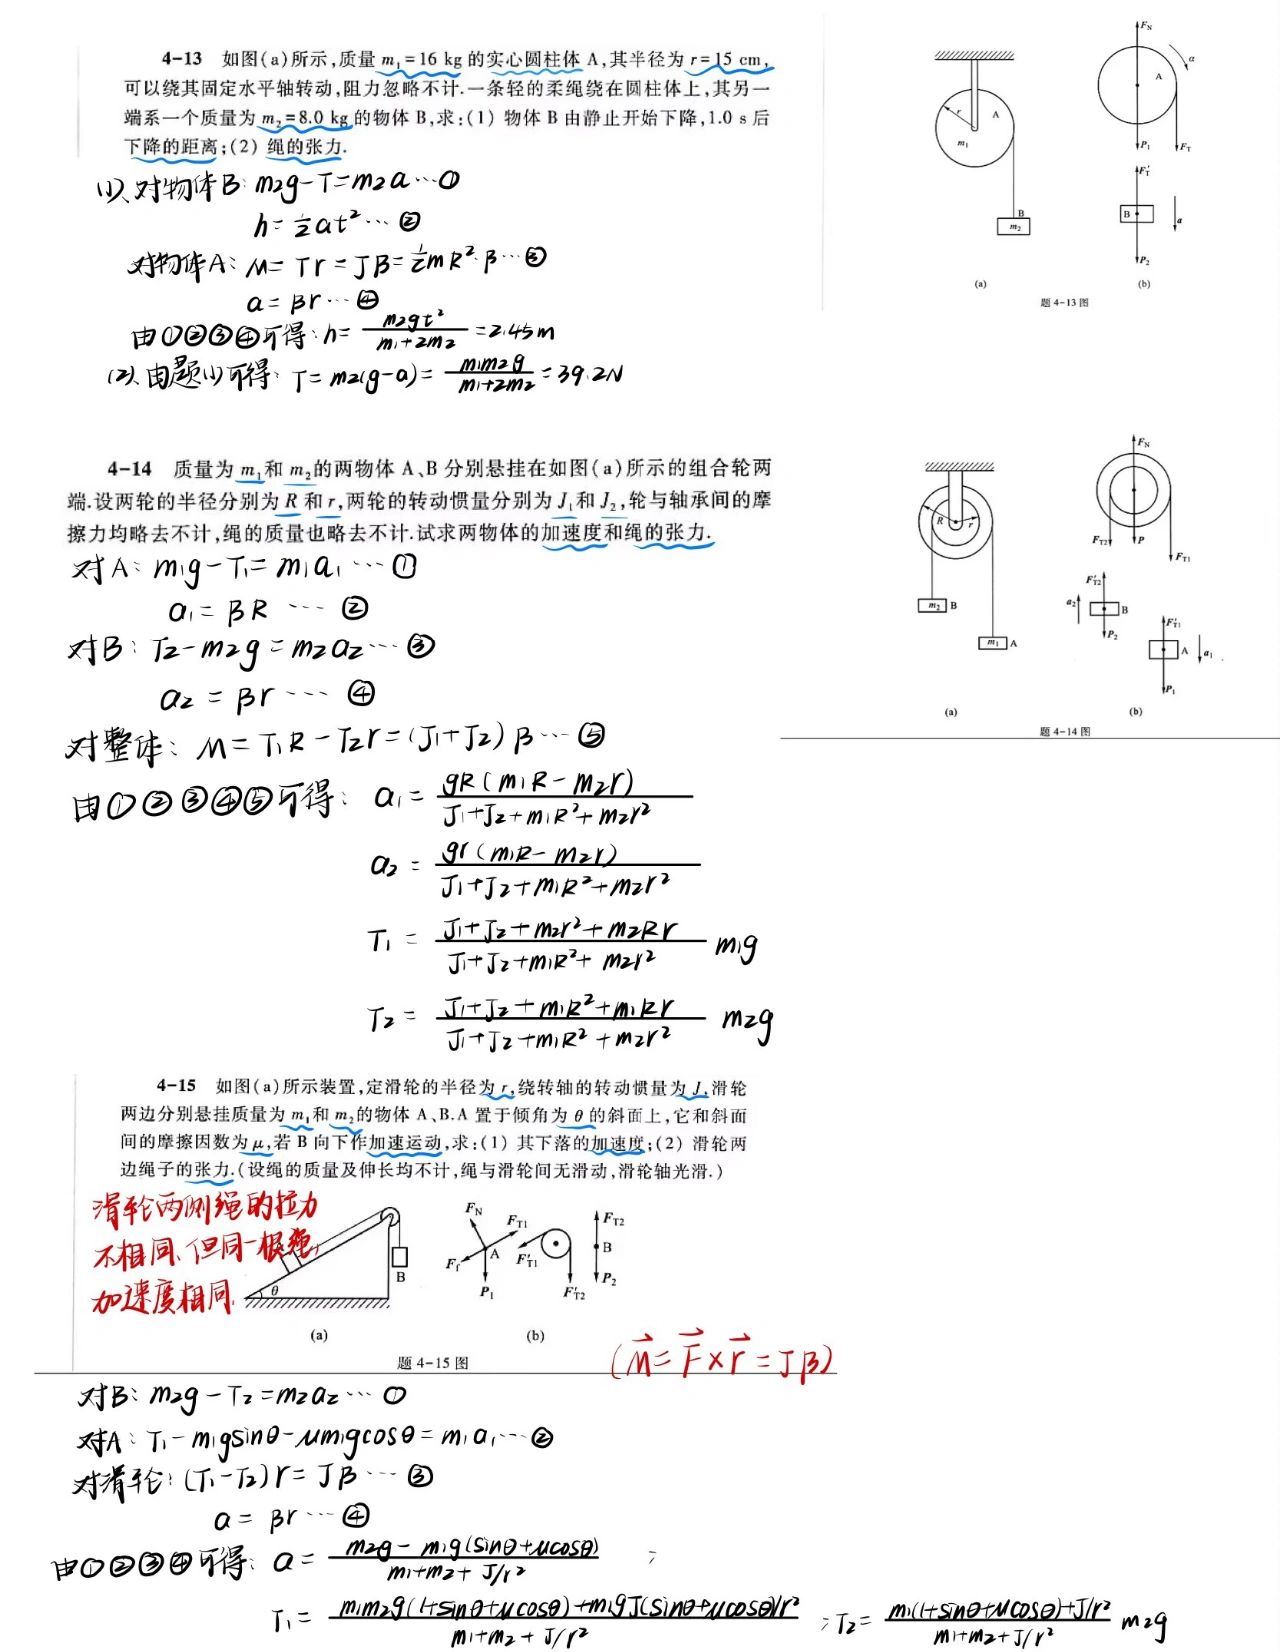 4-13 如图(a)所示,质量 m₁=16 kg 的实心圆柱体 A,其半径为 r=15 cm,
可以绕其固定水平轴转动,阻力忽略不计.一条轻的柔绳绕在圆柱体上,其另一
端系一个质量为 m₂=8.0 kg 的物体 B,求:(1) 物体 B 由静止开始下降,1.0 s 后
下降的距离;(2) 绳的张力.
(1)、对物体B: m₂g-T=m₂a…①
h=½at²…②
对物体A: M=Tr=Jβ=½mR²·β…③
a=βr…④
由①②③④可得: h= m₂gt²/(m₁+2m₂) =2.45m
(2)、由题(1)可得: T=m₂(g-a)= m₁m₂g/(m₁+2m₂) =39.2N
r
A
m₁
B
m₂
(a)
F_N
α
A
P₁
F_T
F'_T
B
a
P₂
(b)
题 4-13 图
4-14 质量为 m₁和 m₂的两物体 A、B 分别悬挂在如图(a)所示的组合轮两
端.设两轮的半径分别为 R 和 r,两轮的转动惯量分别为 J₁和 J₂,轮与轴承间的摩
擦力均略去不计,绳的质量也略去不计.试求两物体的加速度和绳的张力.
对A: m₁g-T₁=m₁a₁…①
a₁=βR…②
对B: T₂-m₂g=m₂a₂…③
a₂=βr…④
对整体: M=T₁R-T₂r=(J₁+J₂)β…⑤
由①②③④⑤可得: a₁= gR(m₁R-m₂r)/(J₁+J₂+m₁R²+m₂r²)
a₂= gr(m₁R-m₂r)/(J₁+J₂+m₁R²+m₂r²)
T₁= (J₁+J₂+m₂r²+m₂Rr)/(J₁+J₂+m₁R²+m₂r²) m₁g
T₂= (J₁+J₂+m₁R²+m₁Rr)/(J₁+J₂+m₁R²+m₂r²) m₂g
R
r
m₂ B
m₁ A
(a)
F_N
F_T2
P
F_T1
F'_T2
a₂
B
P₂
F'_T1
A
a₁
P₁
(b)
题 4-14 图
4-15 如图(a)所示装置,定滑轮的半径为 r,绕转轴的转动惯量为 J,滑轮
两边分别悬挂质量为 m₁和 m₂的物体 A、B.A 置于倾角为 θ 的斜面上,它和斜面
间的摩擦因数为 μ,若 B 向下作加速运动,求:(1) 其下落的加速度;(2) 滑轮两
边绳子的张力.(设绳的质量及伸长均不计,绳与滑轮间无滑动,滑轮轴光滑.)
滑轮两侧绳的拉力
不相同、但同一根绳,
加速度相同.
θ
B
(a)
F_N
F_T1
A
F_f
P₁
F'_T1
F'_T2
F_T2
B
P₂
(b)
题 4-15 图
(M⃗=F⃗×r⃗=Jβ)
对B: m₂g-T₂=m₂a₂…①
对A: T₁-m₁gsinθ-μm₁gcosθ=m₁a₁…②
对滑轮: (T₁-T₂)r=Jβ…③
a=βr…④
由①②③④可得: a= (m₂g-m₁g(sinθ+μcosθ))/(m₁+m₂+J/r²) ;
T₁= (m₁m₂g(1+sinθ+μcosθ)+m₁gJ(sinθ+μcosθ)/r²)/(m₁+m₂+J/r²) ; T₂= (m₁(1+sinθ+μcosθ)+J/r²)/(m₁+m₂+J/r²) m₂g